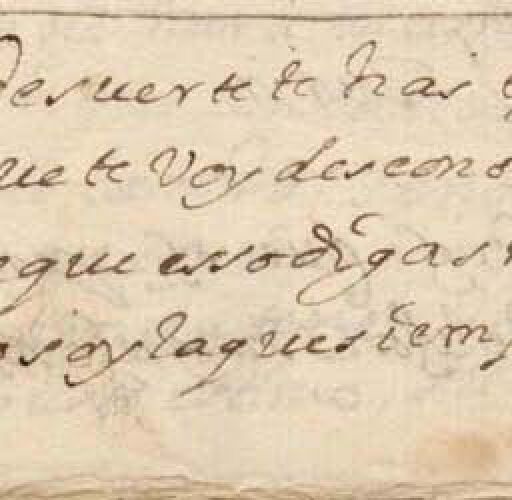 desuerte te has
ue te Voy descono
eque esso digas
soy laquesiem